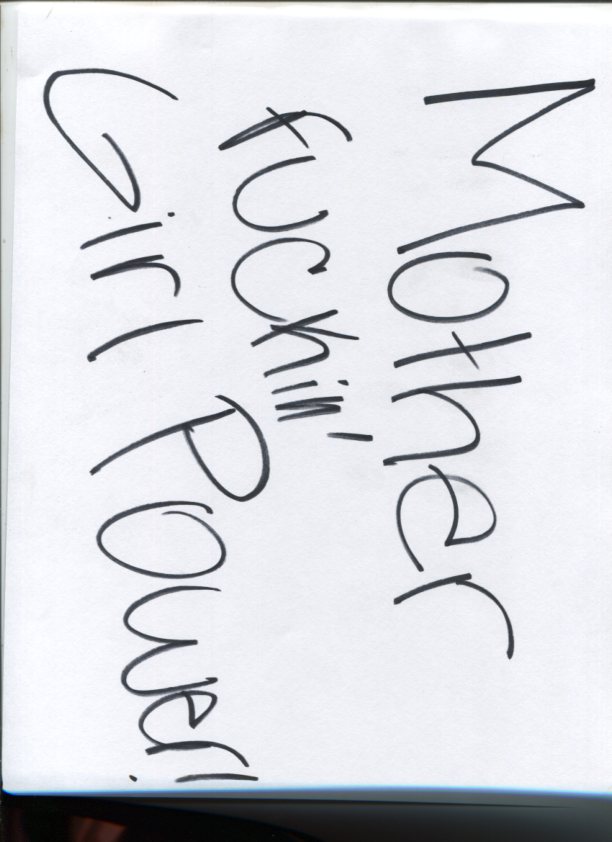 Mother
fuckin'
Girl Power!